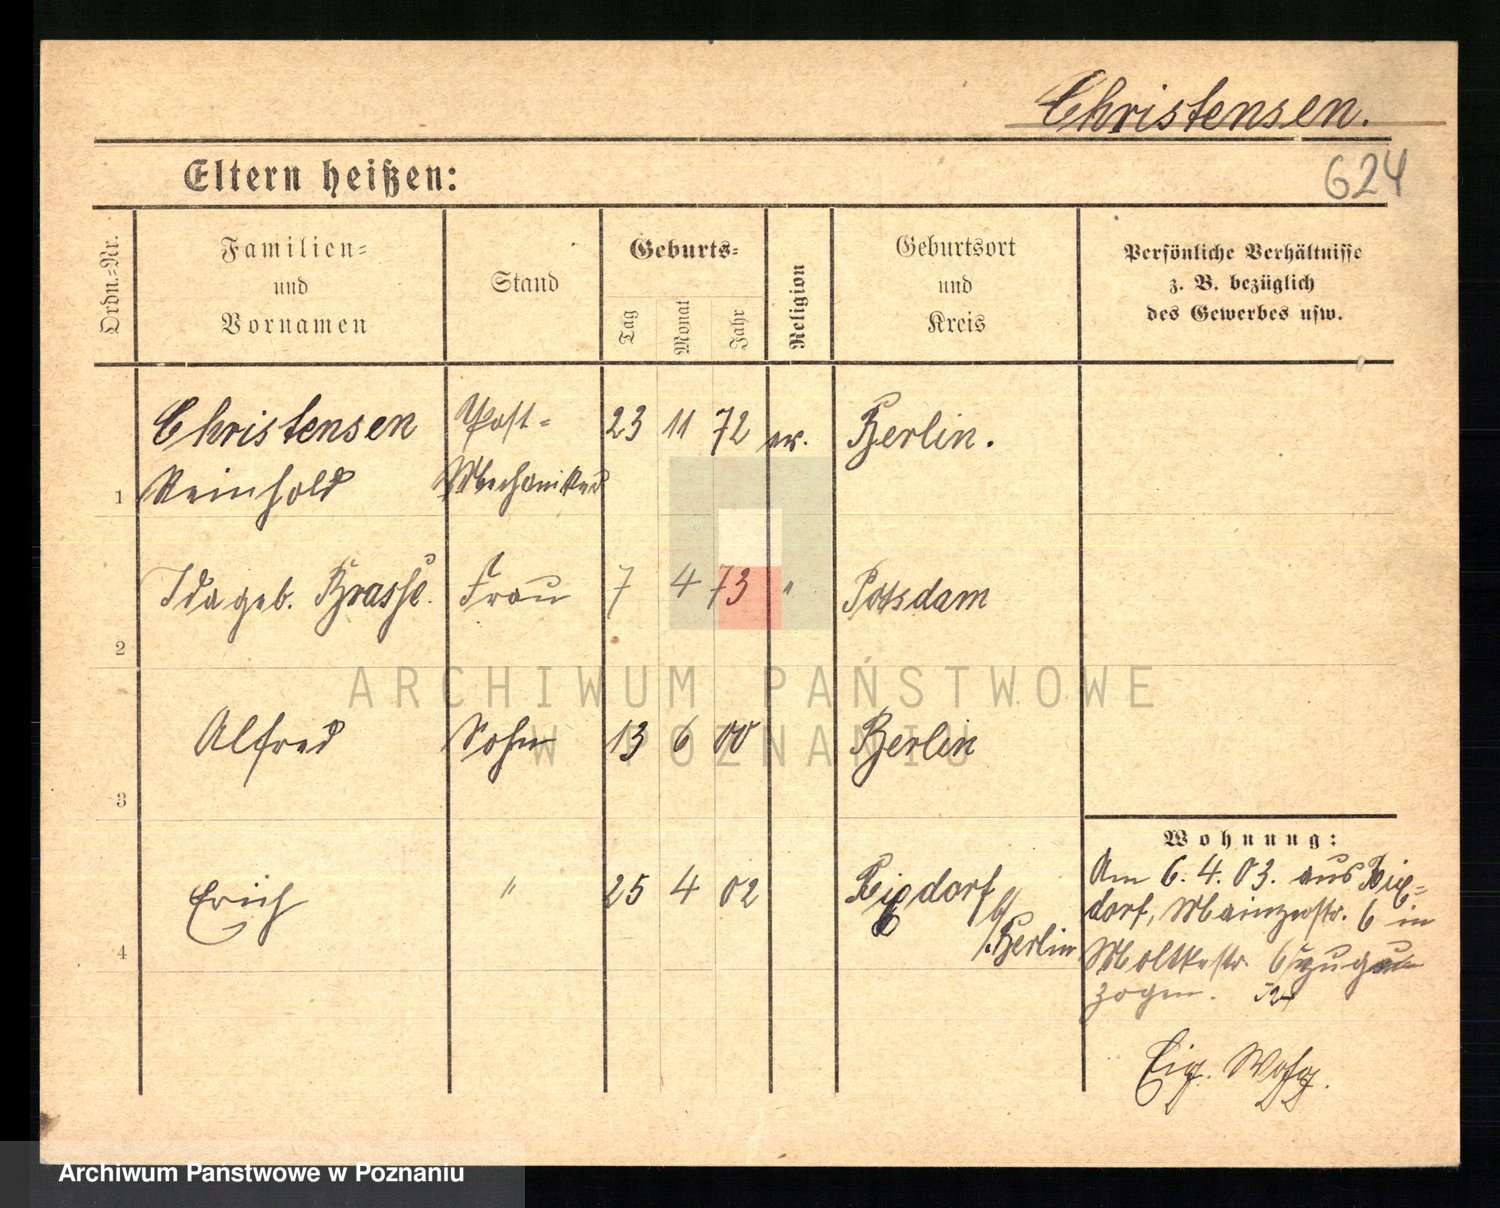 Christensen.
624
Eltern heißen:
Ordn.-Nr.
Familien-
und
Vornamen
Stand
Geburts-
Tag
Monat
Jahr
Religion
Geburtsort
und
Kreis
Persönliche Verhältnisse
z. B. bezüglich
des Gewerbes usw.
Christensen Post- 23 11 72 ev. Berlin.
1 Reinhold Mechaniker
Ida geb. Brasse. Frau 7 4 73 " Potsdam
2
Alfred Sohn 13 6 00 Berlin
3
Erich " 25 4 02 Rixdorf b/
Berlin
4
Wohnung:
Am 6.4.03. aus Rix-
dorf, Mainzerstr. 6 in
Moltkestr. 6
zogen.
Eig. Wohg.
ARCHIWUM PAŃSTWOWE
W POZNANIU
Archiwum Państwowe w Poznaniu